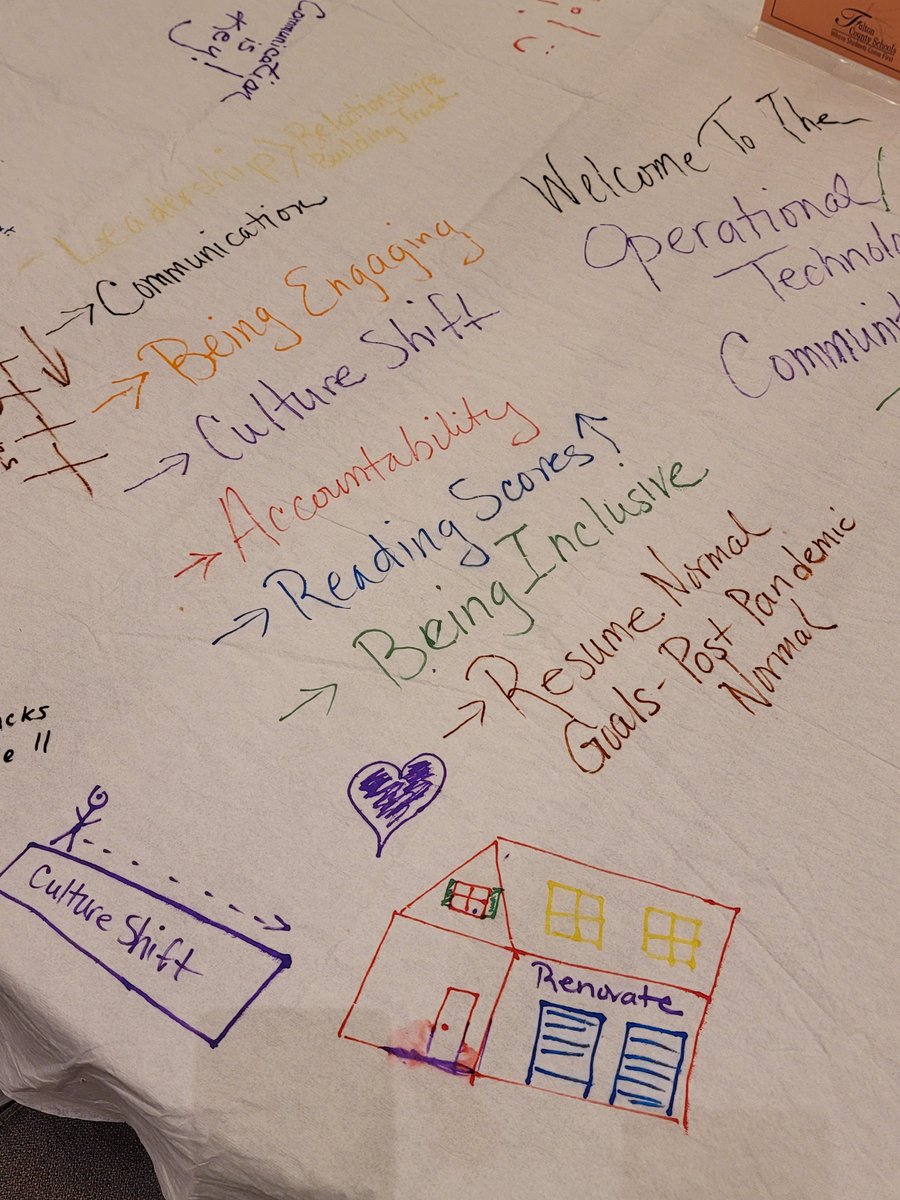 Communication
is
Key!
Fulton
County Schools
Where Students Come First
Welcome To The
Operational/
Technolo
Communit
- Leadership} Relationships
Building Trust
→ Communication
→ Being Engaging
→ Culture Shift
→ Accountability
→ Reading Scores↑
→ Being Inclusive
→ Resume Normal
Goals - Post Pandemic
Normal
Culture Shift
Renovate